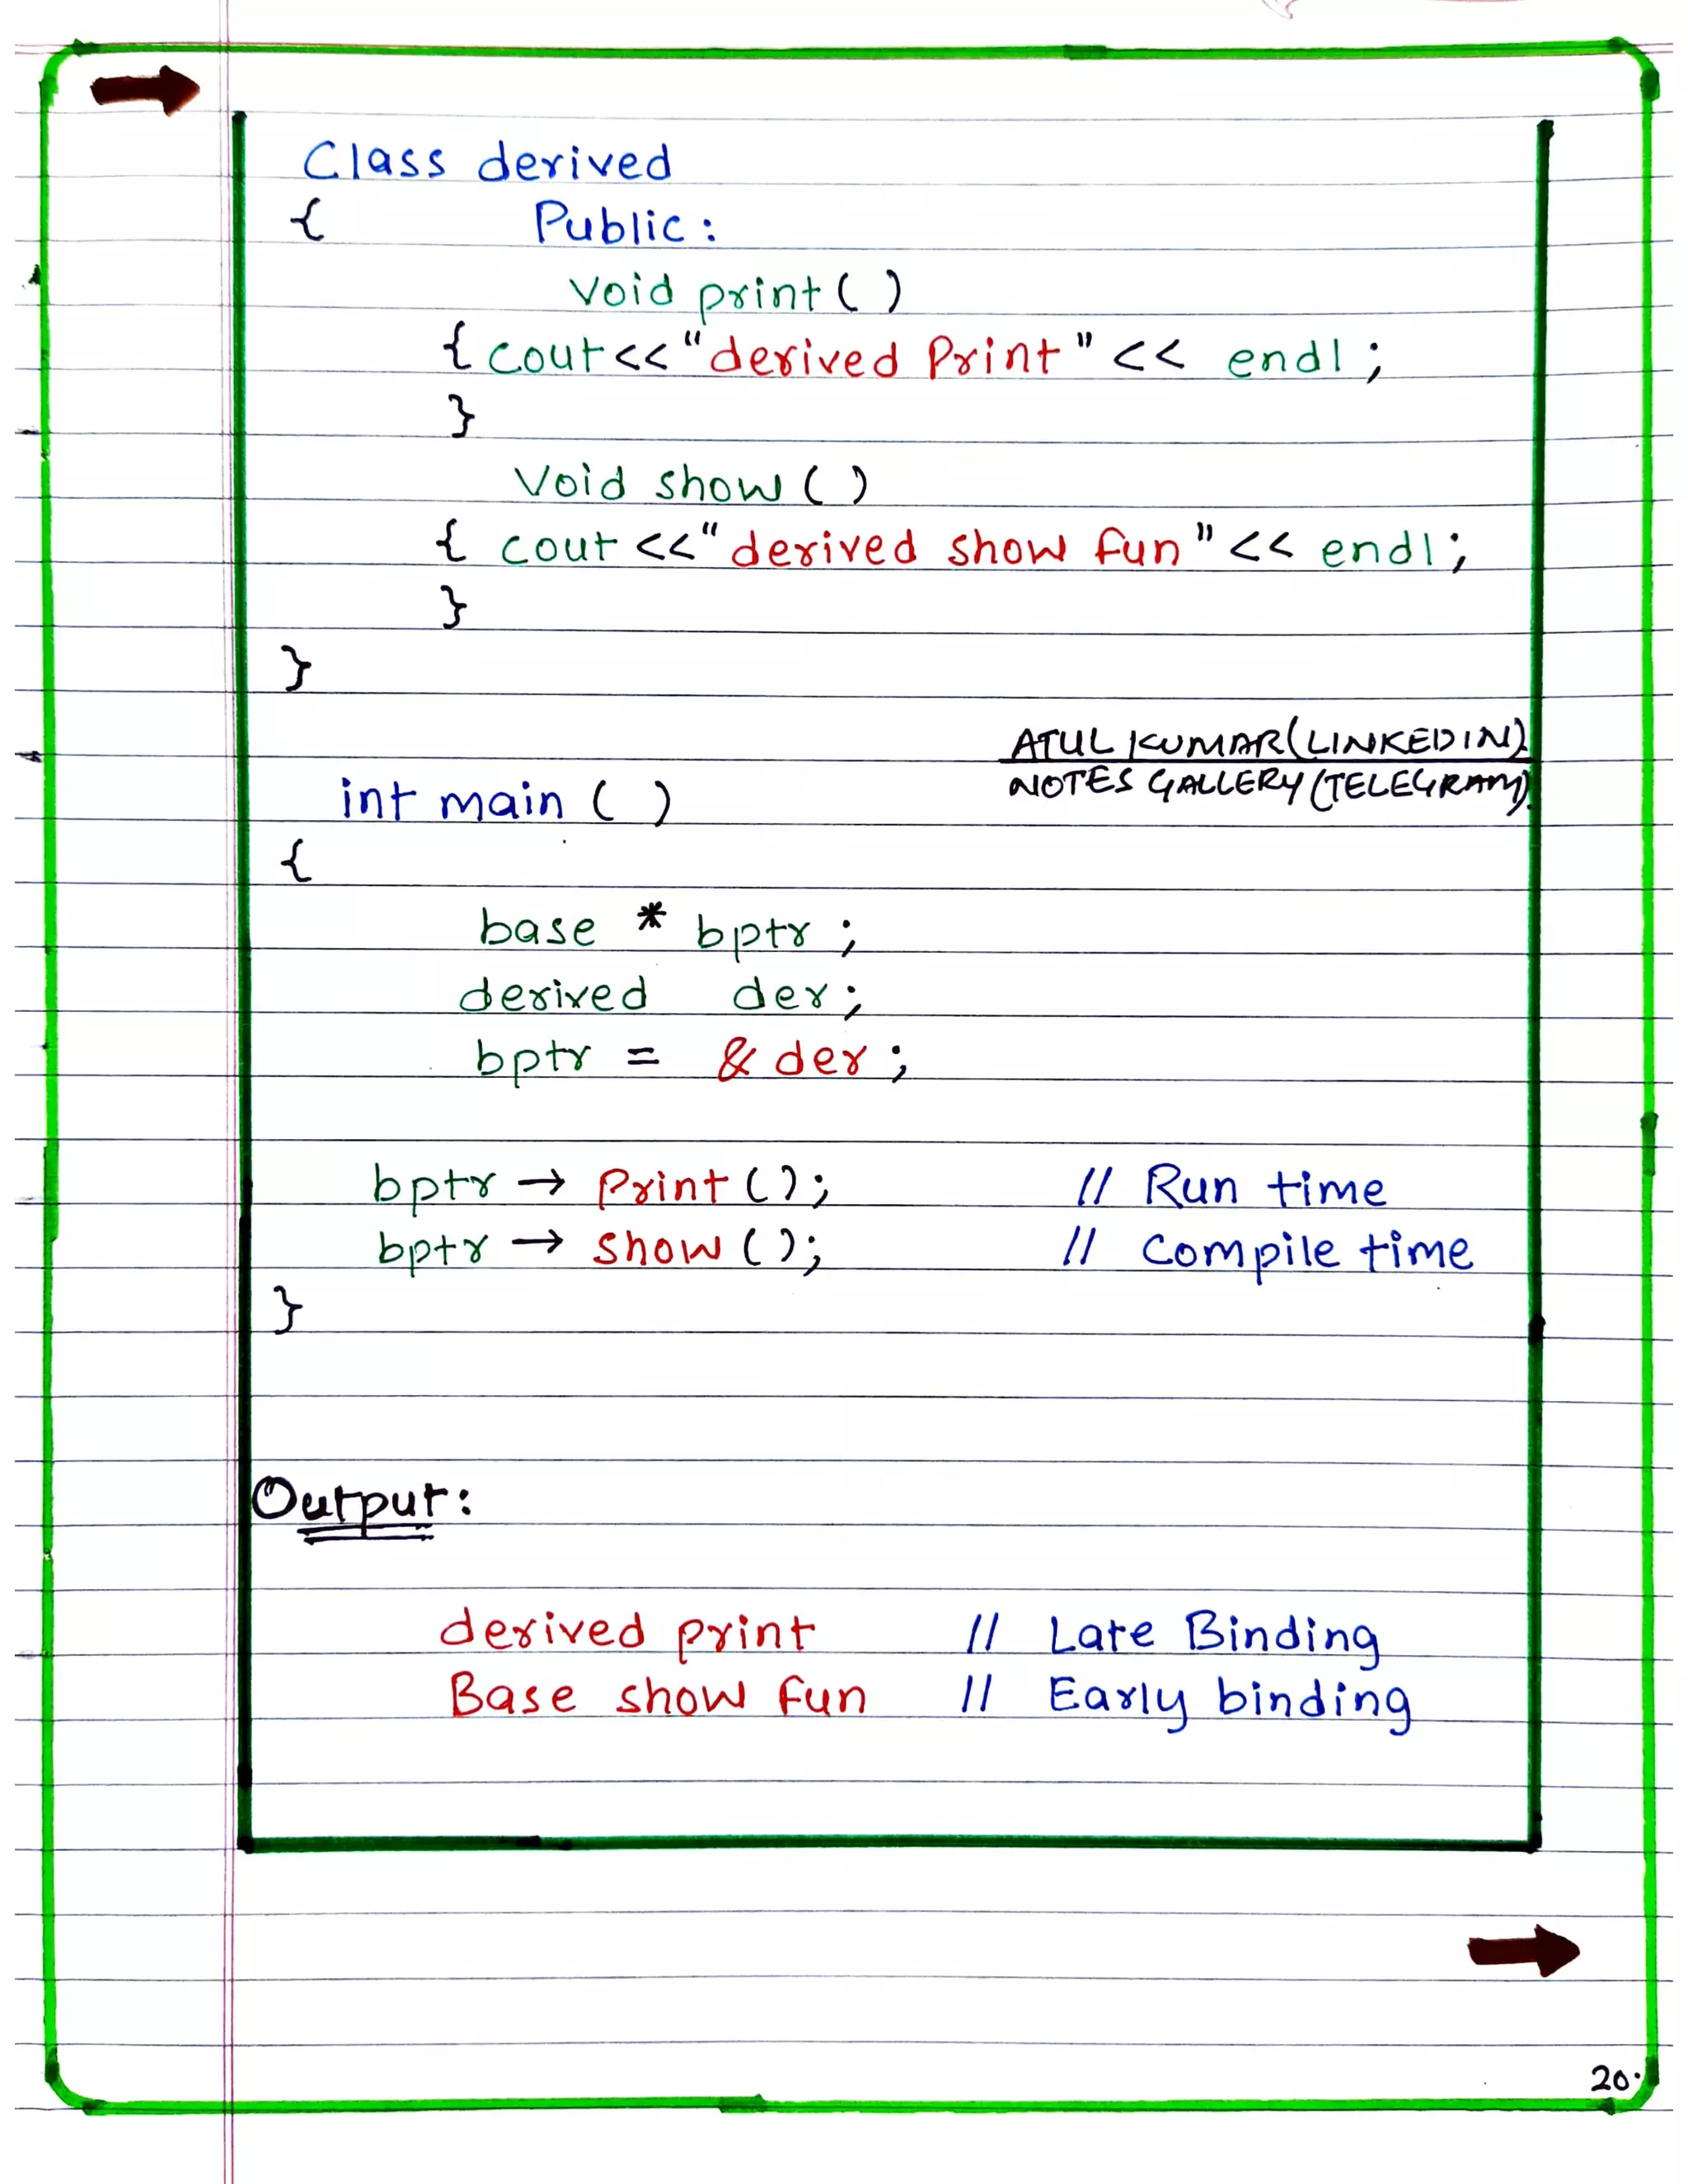 Class derived
{ Public :
Void print ( )
{ cout << "derived Print" << endl ;
}
Void show ( )
{ cout << "derived show fun" << endl ;
}
}
ATUL KUMAR (LINKEDIN)
NOTES GALLERY (TELEGRAM)
int main ( )
{
base * bptr ;
derived der ;
bptr = & der ;
bptr → Print ( ) ; // Run time
bptr → show ( ) ; // Compile time
}
Output :
derived print // Late Binding
Base show fun // Early binding
20.